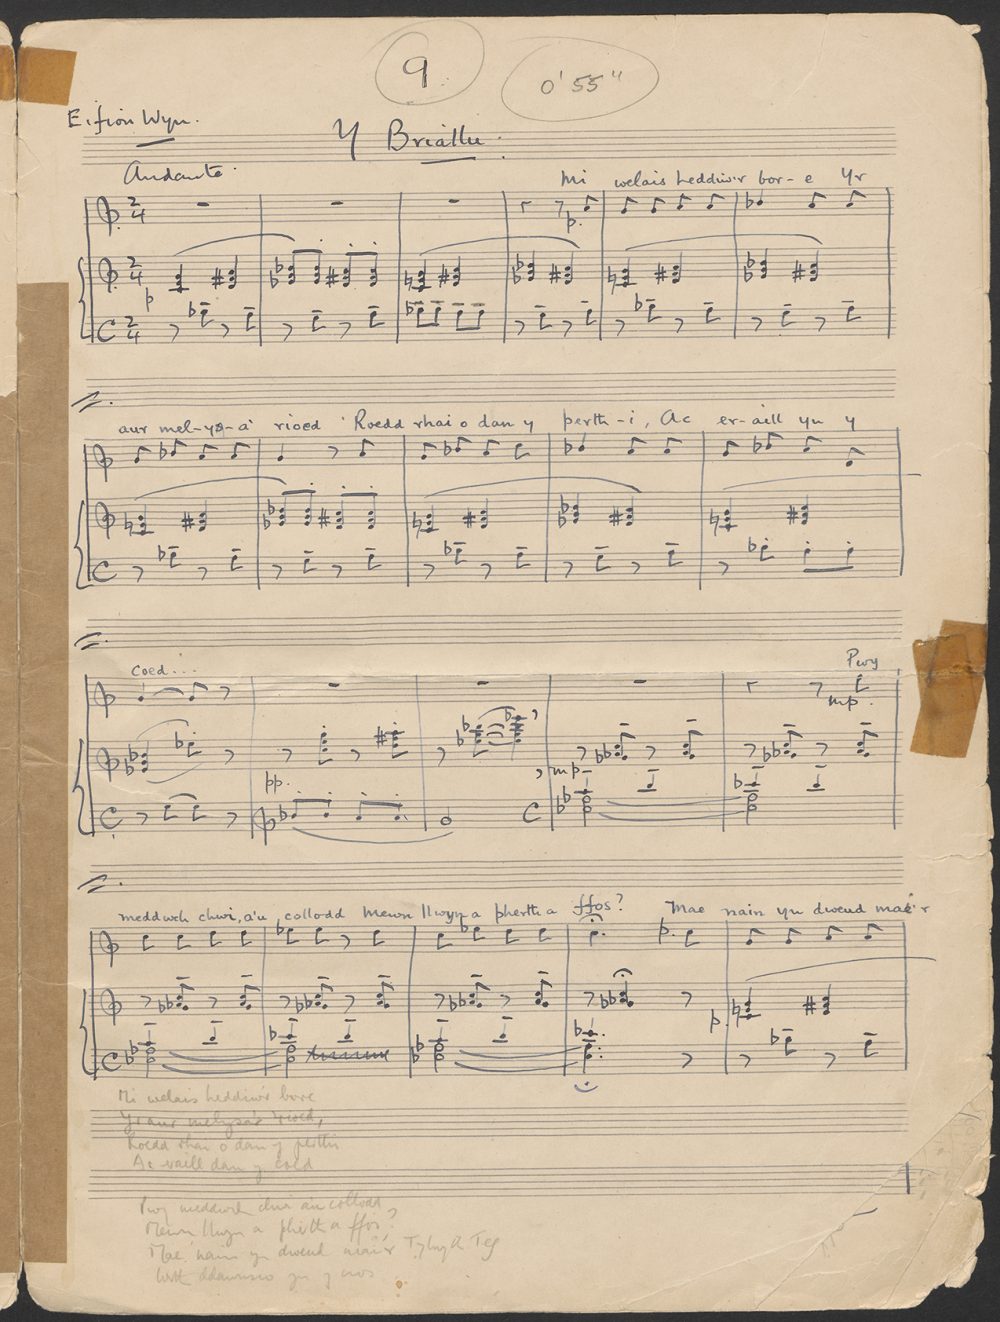 9
0' 55"
Eifion Wyn.
Y Briallu.
Andante.
Mi welais heddiw'r bor-e Yr
p.
p
aur mel-ys-a' rioed 'Roedd rhai o dan y perth-i, Ac er-aill yn y
coed...
Pwy
mp.
pp.
mp
meddwch chwi, a'u collodd Mewn llwyn a pherth a ffos? Mae nain yn dweud mae'r
p.
p.
Mi welais heddiw'r bore
Yr aur melysa'r 'rioed,
Roedd rhai o dan y perthi
Ac eraill dan y coed
Pwy meddwch chwi a'u collodd
Mewn llwyn a pherth a ffos?
Mae nain yn dweud mai'r Tylwyth Teg
Wrth ddawnsio yn y nos